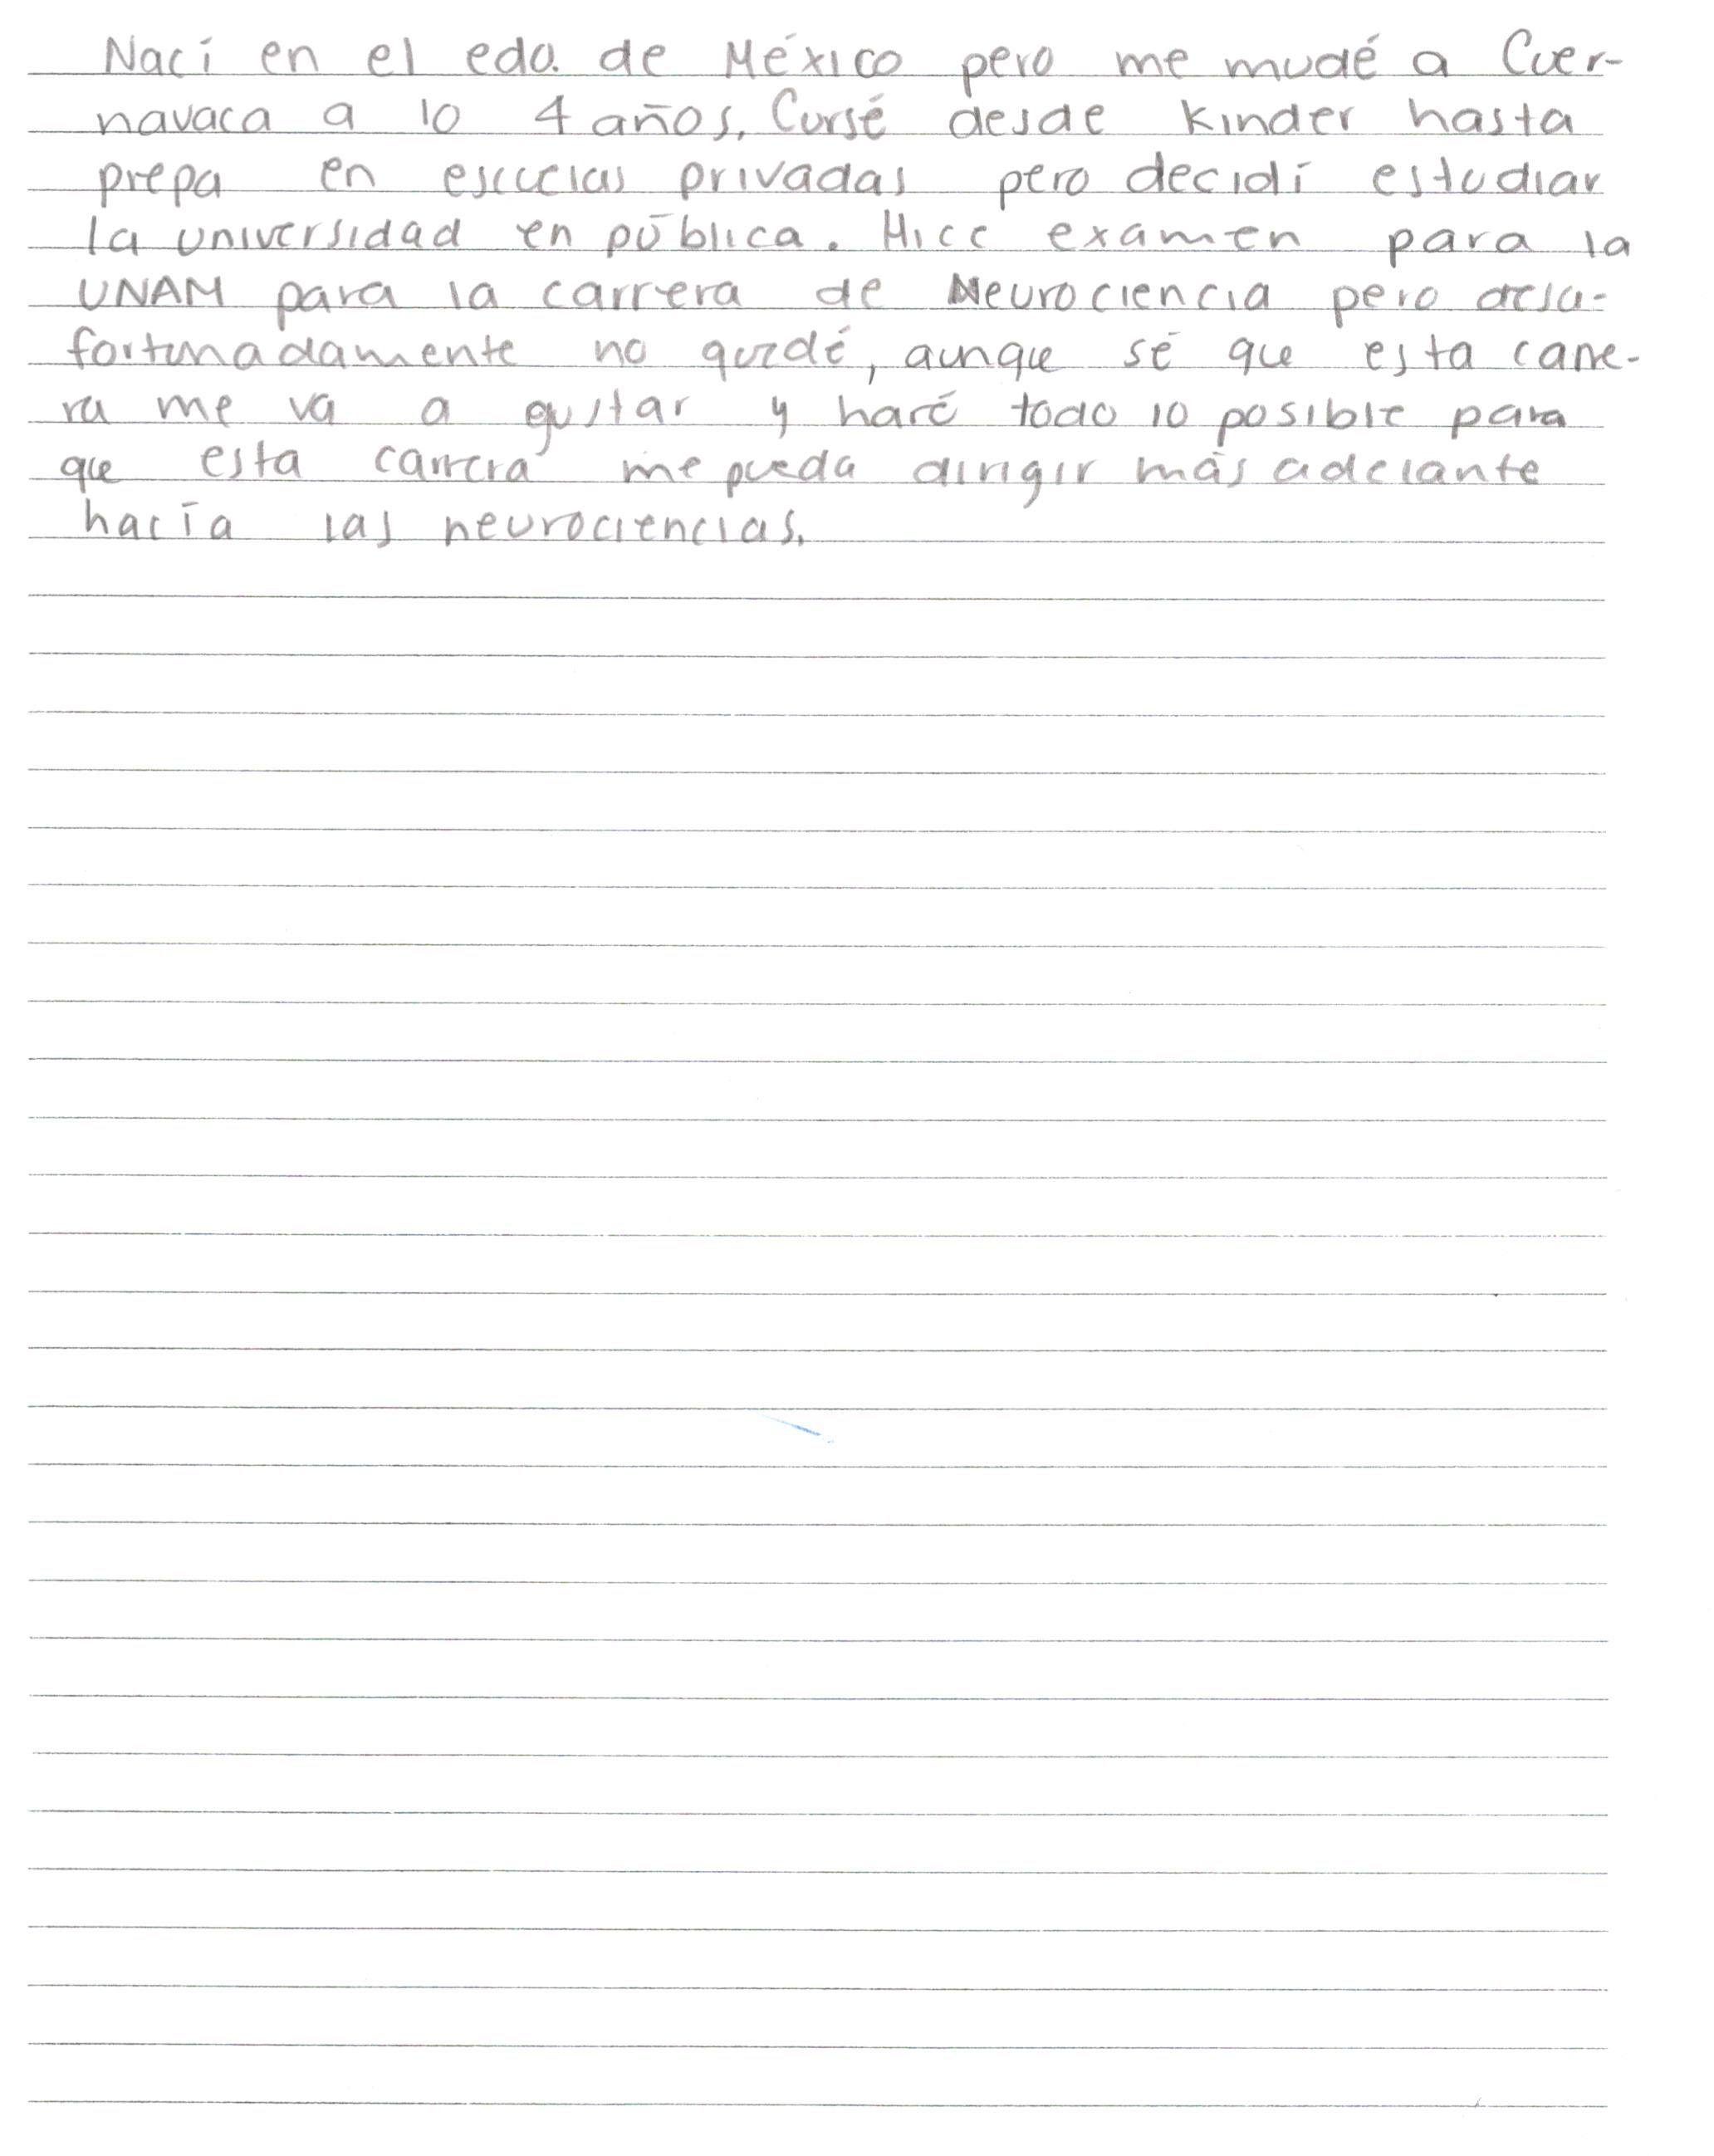 Nací en el edo. de México pero me mudé a Cuer-
navaca a lo 4 años. Cursé desde kinder hasta
prepa en escuelas privadas pero decidí estudiar
la universidad en pública. Hice examen para la
UNAM para la carrera de Neurociencia pero desa-
fortunadamente no quedé, aunque sé que esta carre-
ra me va a gustar y haré todo lo posible para
que esta carrera me pueda dirigir más adelante
hacía las neurociencias.